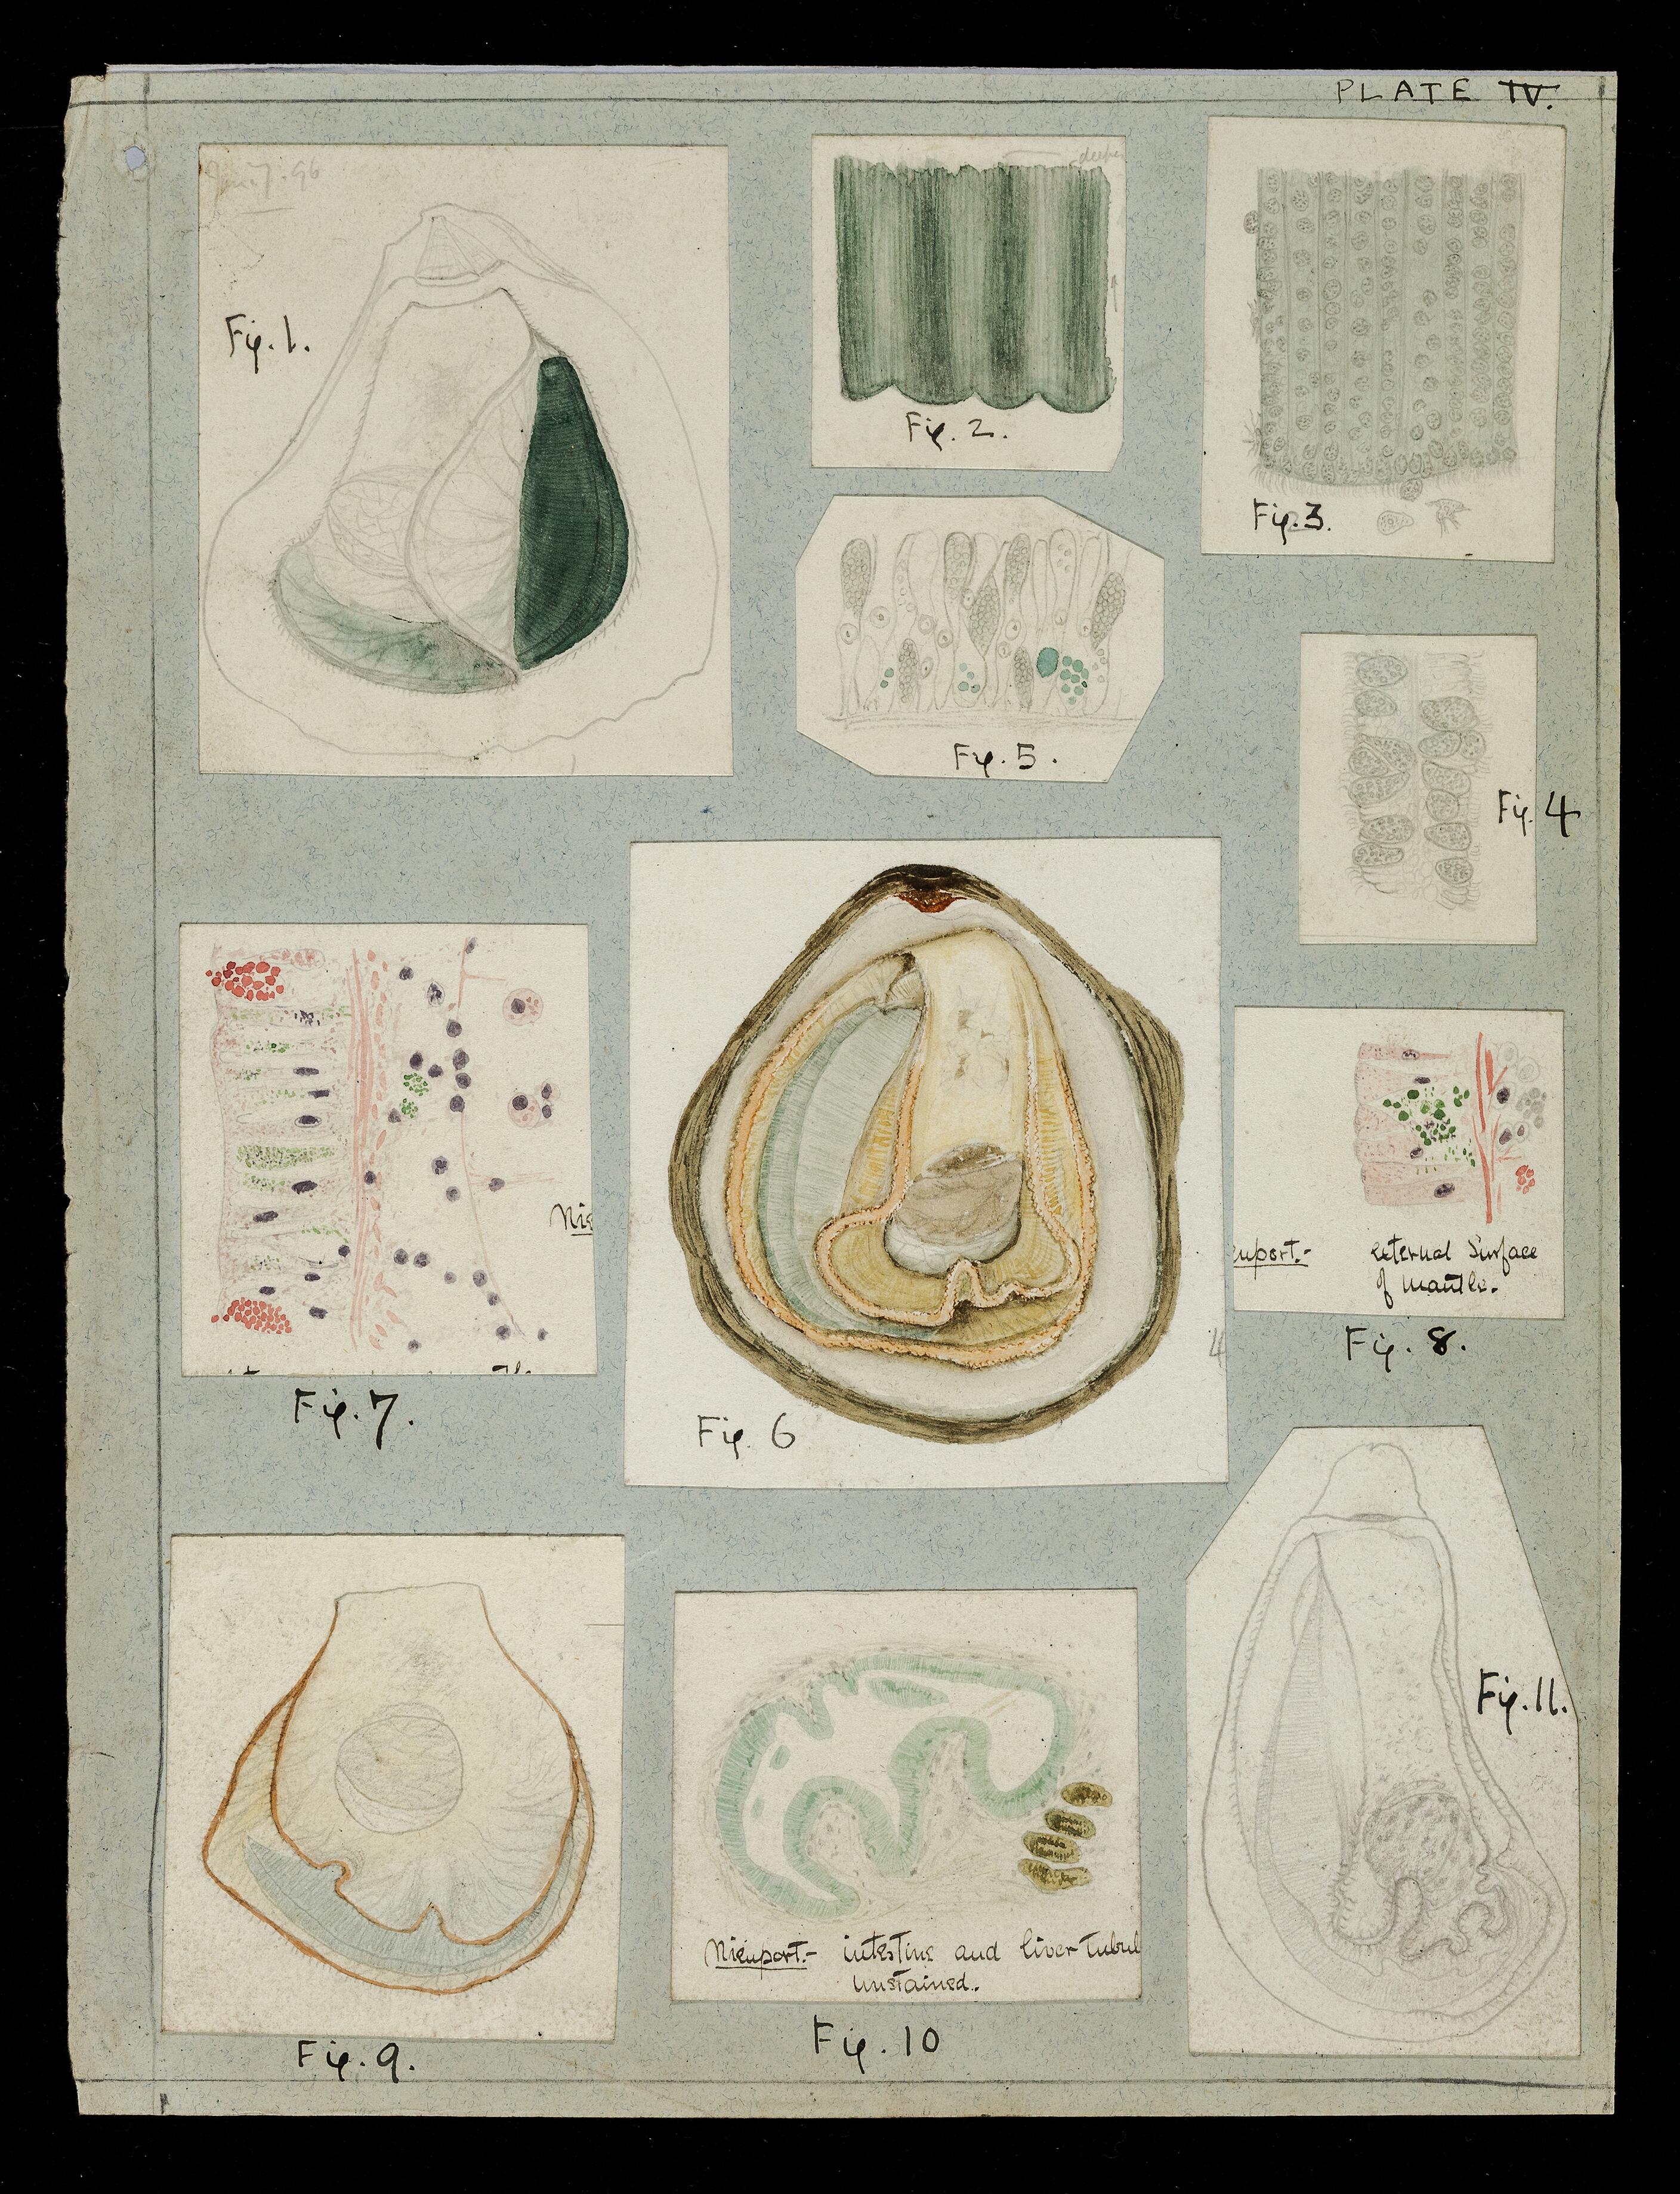 PLATE IV.
Fig. 1.
deeper
Fig. 2.
Fig. 3.
Fig. 5.
Fig. 4
Fig. 7.
Fig. 6
external Surface
of mantle.
Fig. 8.
Fig. 11.
Nieuport.- intestine and liver tubul
unstained.
Fig. 9.
Fig. 10